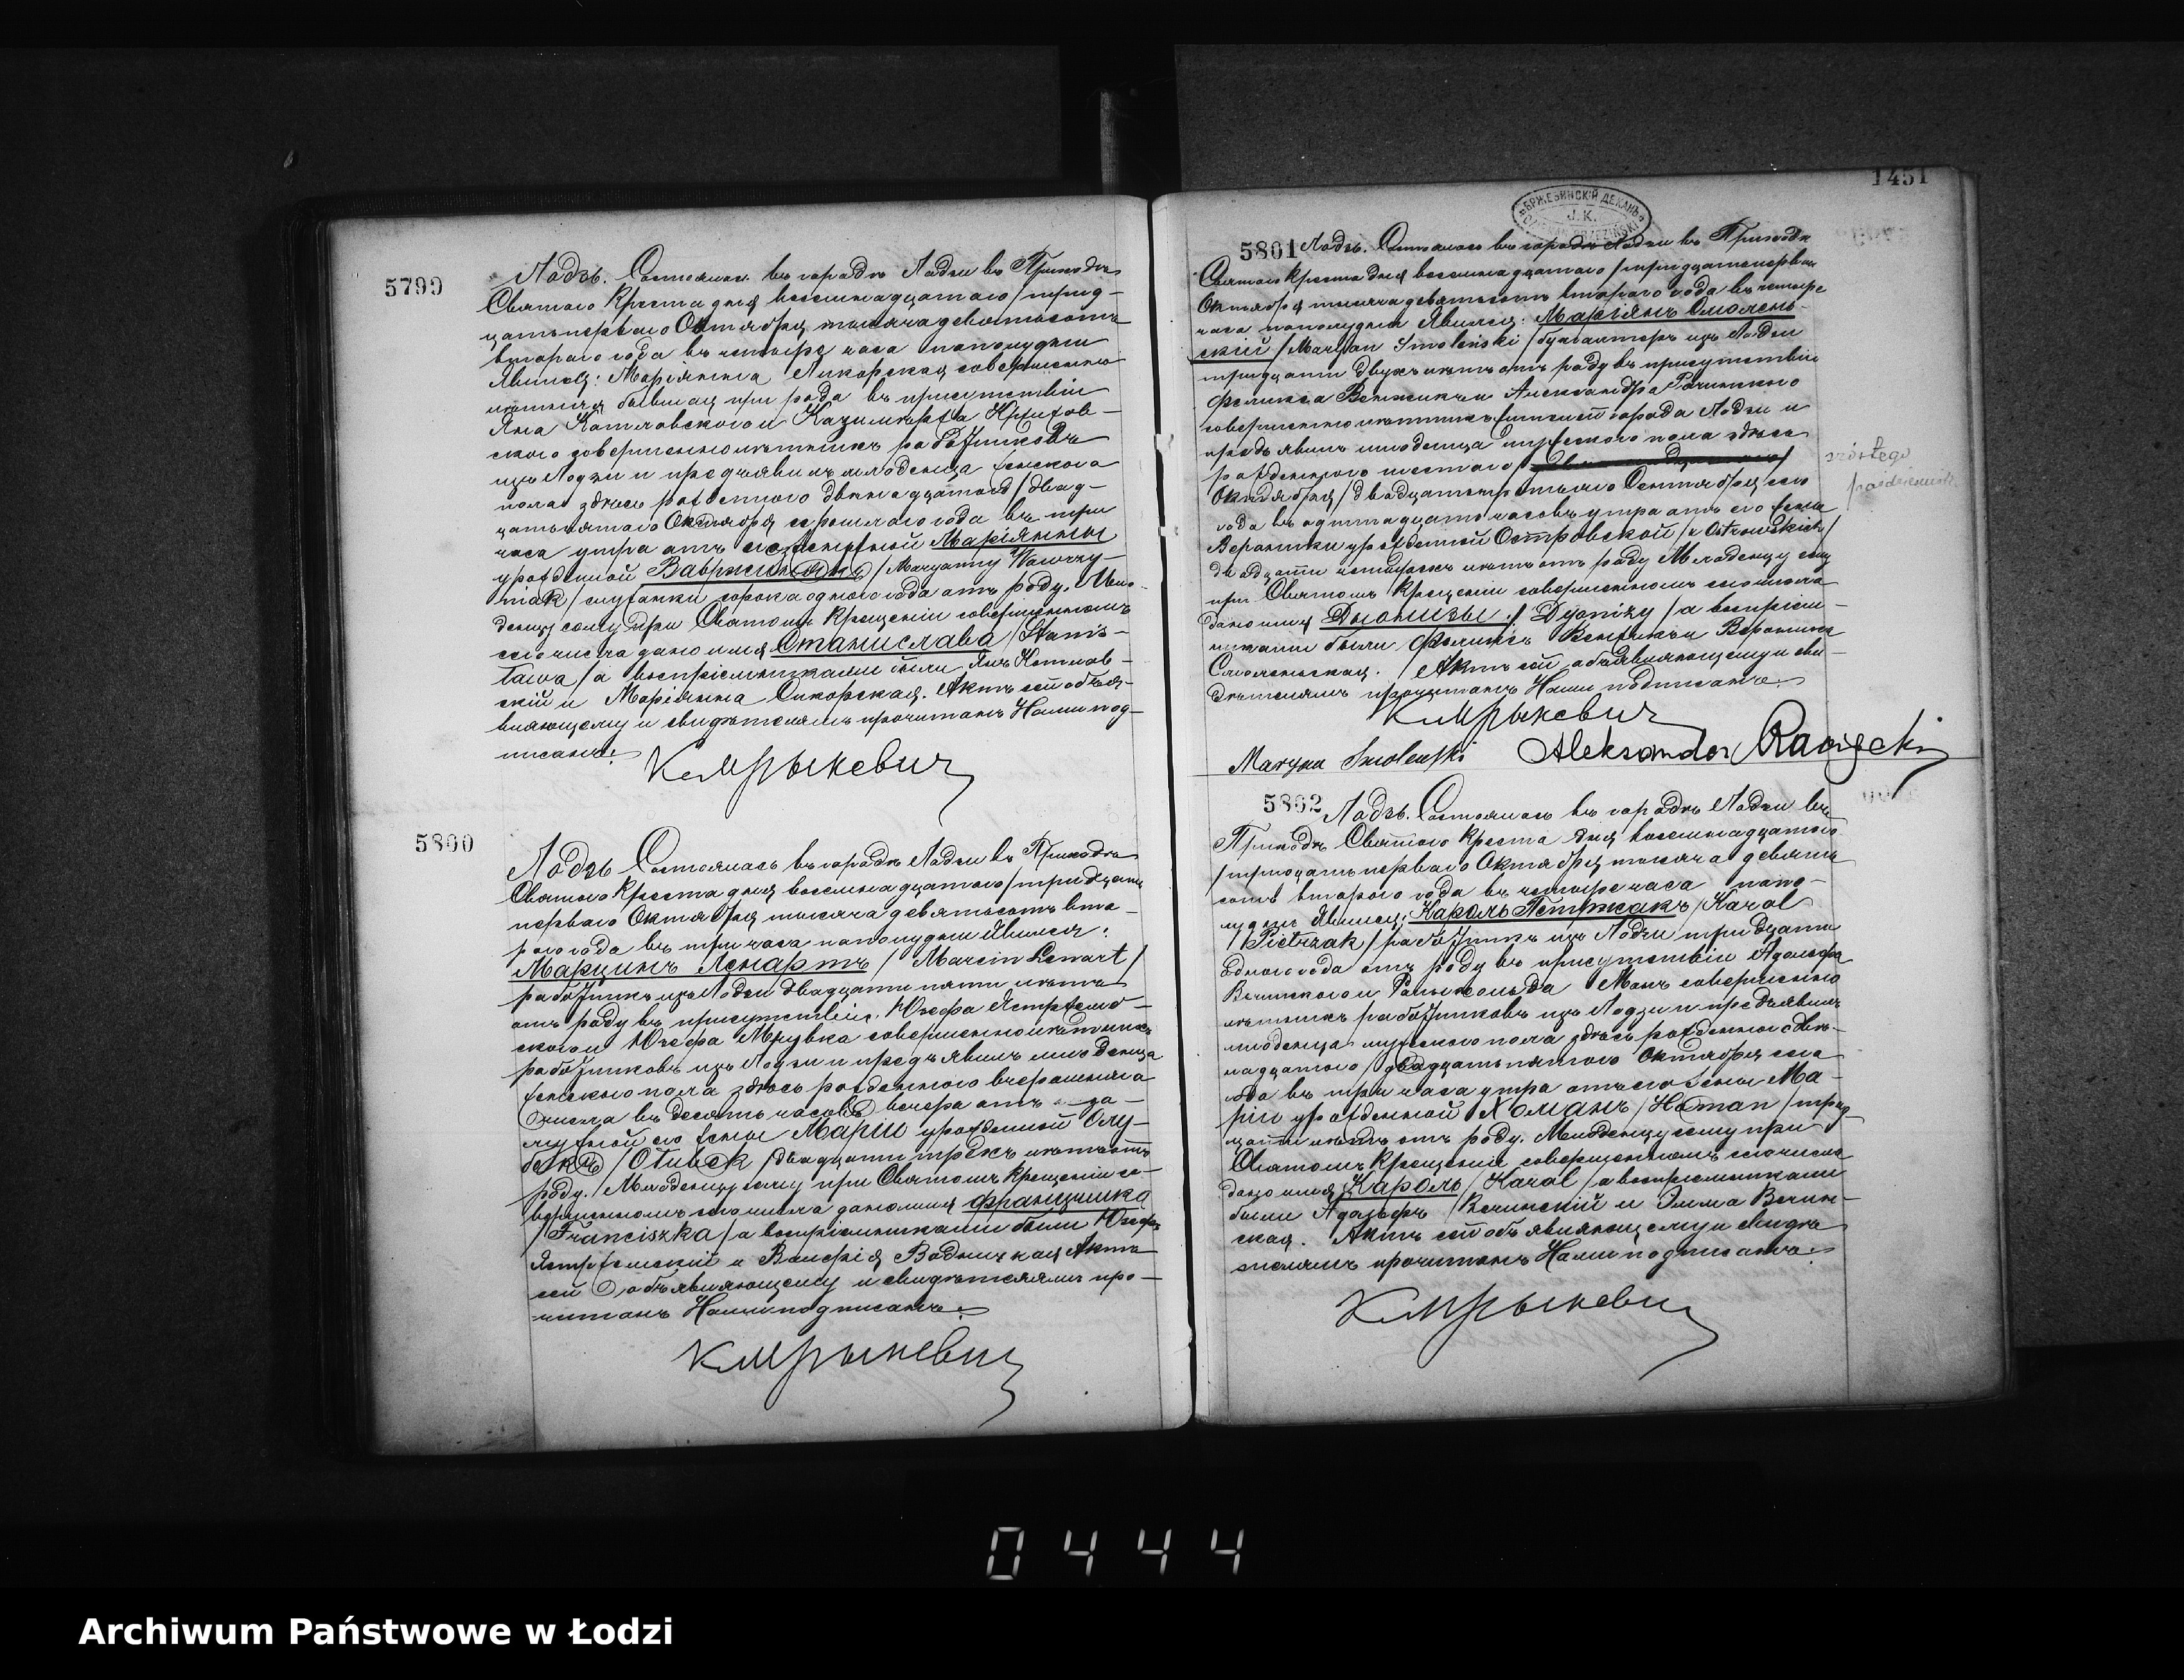 5799
Лодзь. Состоялось въ городѣ Лодзи въ Приходѣ
Святого Креста дня восемнадцатого /трид-
цатьперваго Октября тысяча девятьсотъ
второго года въ четыре часа пополудни
Явилась: Маріянна Сикорская совершенно
лѣтняя бывшая при родахъ въ присутствіи
Яна Котловского и Казимержа
ского совершеннолѣтнихъ работниковъ
изъ Лодзи и предъявила младенца женского
пола здѣсь рожденного двѣнадцатого /двад-
цатьпятаго Октября сего года въ три
часа утра отъ незамужной Маріянны
урожденной Вавржинякъ /Maryanny Wawrzy-
niak/ служанки сорока одного года отъ роду. Мла-
денцу сему при Святомъ Крещеніи совершенномъ
сего числа дано имя Станислава /Stanis-
ława/ а воспріемниками были Янъ Котлов-
скій и Маріянна Сикорская. Актъ сей объя-
вляющему и свидѣтелямъ прочитанъ Нами под-
писанъ.
К. Мрыкевич
5800
Лодзь Состоялось въ городѣ Лодзи въ Приходѣ
Святого Креста дня восемнадцатого /тридцать
перваго Октября тысяча девятьсотъ вто-
рого года въ три часа пополудни Явился:
Марцинъ Ленартъ / Marcin Lenart/
работникъ изъ Лодзи двадцати пяти лѣтъ
отъ роду въ присутствіи Юзефа Ястржем-
ского и Юзефа Мрувка совершеннолѣтнихъ
работниковъ изъ Лодзи и предъявилъ младенца
женского пола здѣсь рожденного вчерашняго
числа въ десять часовъ вечера отъ за-
мужной его жены Маріи урожденной Олу-
бекъ /Olubek/ двадцати трехъ лѣтъ отъ
роду. Младенцу сему при Святомъ Крещеніи со-
вершенномъ сего числа дано имя Францишка
/Franciszka/ а воспріемниками были Юзефъ
Ястржемскій и Валерія Водницкая Актъ
сей объявляющему и свидѣтелямъ про-
читанъ Нами подписанъ.
К. Мрыкевич
1451
БРЖЕЗИНСКІЙ ДЕКАНЪ
J. K.
5801 Лодзь. Состоялось въ городѣ Лодзи въ Приходѣ
Святого Креста дня восемнадцатого /тридцатьперваго
Октября тысяча девятьсотъ второго года въ четыре
часа пополудни Явился: Маріянъ Смолень-
скій /Maryan Smoleński/ бухгалтеръ изъ Лодзи
тридцати двухъ лѣтъ отъ роду въ присутствіи
Феликса и Александра
совершеннолѣтнихъ города Лодзи и
предъявилъ младенца мужеского пола здѣсь
рожденного шестаго
Октября /двадцатьтретьяго Сентября сего
года въ одиннадцать часовъ утра отъ его жены
Вероники урожденной Островской /z Ostrowskich/
двадцати четырехъ лѣтъ отъ роду Младенцу сему
при Святомъ Крещеніи совершенномъ сего числа
дано имя Діонизы / Dyonizy/ а воспріем-
никами были Феликсъ и Вероника
Смоленьская. Актъ сей объявляющему и сви-
дѣтелямъ прочитанъ Нами подписанъ.
szóstego
październik
К. Мрыкевич
Maryan Smoleński Aleksander Raczyecki
5802 Лодзь. Состоялось въ городѣ Лодзи въ
Приходѣ Святого Креста дня восемнадцатого
/тридцатьперваго Октября тысяча девять
сотъ второго года въ четыре часа попо-
лудни Явился: Кароль Петржакъ /Karol
Pietrzak/ работникъ изъ Лодзи тридцати
одного года отъ роду въ присутствіи Адольфа
и Манъ совершенно
лѣтнихъ работниковъ изъ Лодзи и предъявилъ
младенца мужеского пола здѣсь рожденного двѣ-
надцатого /двадцатьпятого Октября сего
года въ три часа утра отъ его жены Ма-
ріи урожденной Хоманъ /Homan/ трид-
цати лѣтъ отъ роду. Младенцу сему при
Святомъ Крещеніи совершенномъ сего числа
дано имя Кароль /Karol/ а воспріемниками
были Адольфъ и Эмма
ская. Актъ сей объявляющему и свидѣ-
телямъ прочитанъ Нами подписанъ.
К. Мрыкевич
0444
Archiwum Państwowe w Łodzi